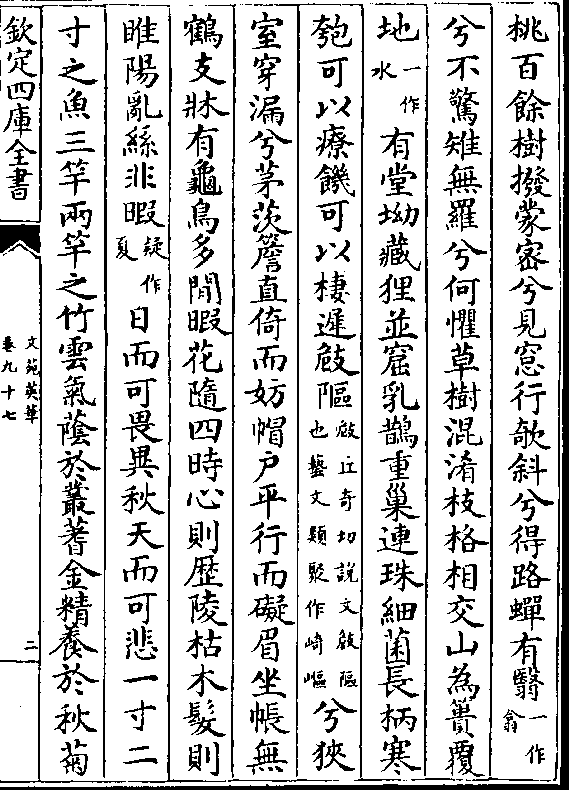 桃百餘樹撥蒙密兮見窓行欹斜兮得路蟬有翳一作翁
兮不驚雉無羅兮何懼草樹混淆枝格相交山為簣覆
地一作水有堂坳藏狸並窟乳鵲重巢連珠細菌長柄寒
匏可以療饑可以棲遲㩻䧢㩻丘奇切說文㩻䧢也藝文類聚作崎嶇兮狹
室穿漏兮茅茨簷直倚而妨帽户平行而礙眉坐帳無
鶴支牀有龜鳥多閒暇花隨四時心則歴陵枯木髮則
睢陽亂絲非暇疑作夏日而可畏異秋天而可悲一寸二
寸之魚三竿兩竿之竹雲氣蔭於叢蓍金精養於秋菊
欽定四庫全書
文苑英華
卷九十七
二